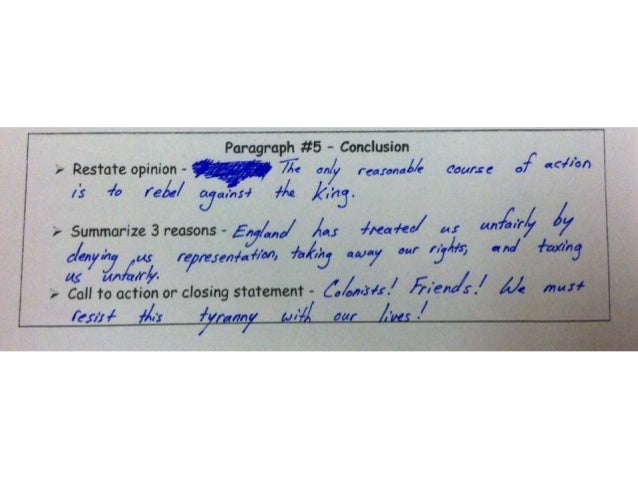 Paragraph #5 - Conclusion
➢ Restate opinion - The only reasonable course of action
is to rebel against the King.
➢ Summarize 3 reasons - England has treated us unfairly by
denying us representation, taking away our rights, and taxing
us unfairly.
➢ Call to action or closing statement - Colonists! Friends! We must
resist this tyranny with our lives!